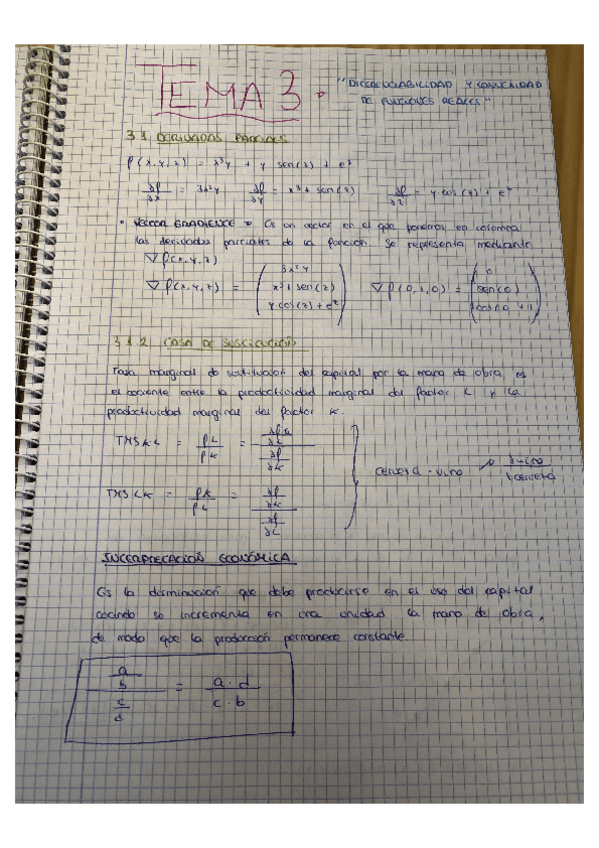 TEMA 3.
"DIFERENCIABILIDAD Y CONVEXIDAD
DE FUNCIONES REALES"
3.1 DERIVADAS PARCIALES
f(x,y,z) = x³y + y sen(z) + e^z
∂f/∂x = 3x²y   ∂f/∂y = x³ + sen(z)   ∂f/∂z = y cos(z) + e^z
• VECTOR GRADIENTE → Es un vector en el que ponemos en columna
las derivadas parciales de la función. Se representa mediante
∇f(x,y,z)
∇f(x,y,z) = (3x²y, x³ + sen(z), y·cos(z) + e^z)   ∇f(0,1,0) = (0, sen(0), cos(0) + 1)
3.1.2 TASA DE SUSTITUCIÓN
Tasa marginal de sustitución del capital por la mano de obra, es
el cociente entre la productividad marginal del factor L y la
productividad marginal del factor K.
TMS KL = fL/fK = (∂f/∂L)/(∂f/∂K)
cerveza · vino
TMS LK = fK/fL = (∂f/∂K)/(∂f/∂L)
INTERPRETACIÓN ECONÓMICA
Es la disminución que debe producirse en el uso del capital
cuando se incrementa en una unidad la mano de obra,
de modo que la producción permanece constante.
(a/b)/(c/d) = a·d/c·b